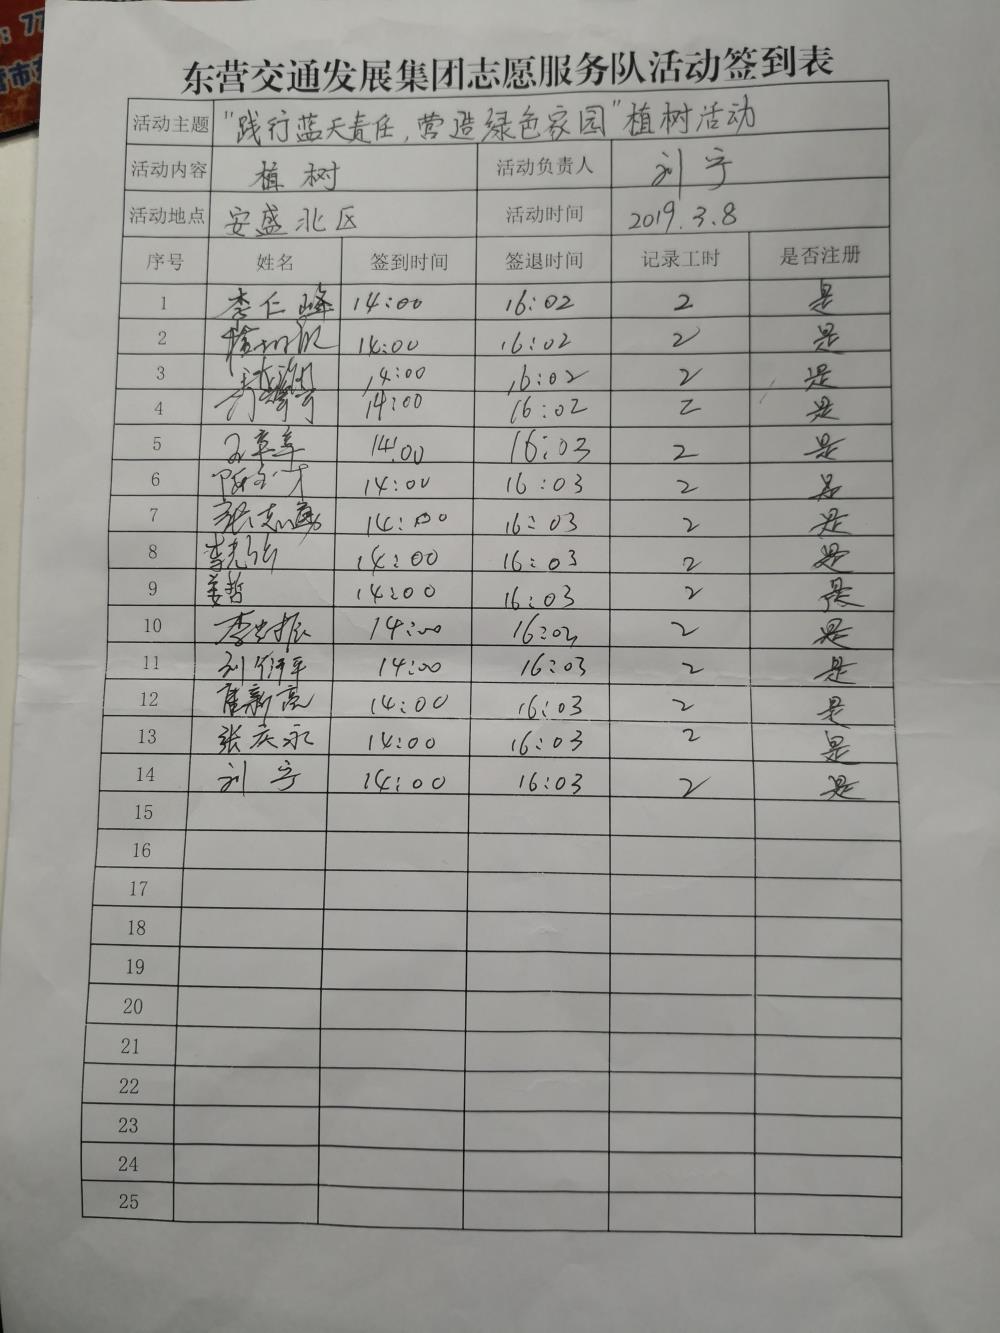 东营交通发展集团志愿服务队活动签到表
活动主题 "践行蓝天责任,营造绿色家园"植树活动
活动内容 植树 活动负责人 刘宁
活动地点 安盛北区 活动时间 2019.3.8
序号 姓名 签到时间 签退时间 记录工时 是否注册
1 李仁峰 14:00 16:02 2 是
2 14:00 16:02 2 是
3 14:00 16:02 2 是
4 14:00 16:02 2 是
5 14:00 16:03 2 是
6 14:00 16:03 2 是
7 张志勇 14:00 16:03 2 是
8 14:00 16:03 2 是
9 姜哲 14:00 16:03 2 是
10 14:00 16:03 2 是
11 14:00 16:03 2 是
12 唐新亮 14:00 16:03 2 是
13 张庆永 14:00 16:03 2 是
14 刘宁 14:00 16:03 2 是
15
16
17
18
19
20
21
22
23
24
25